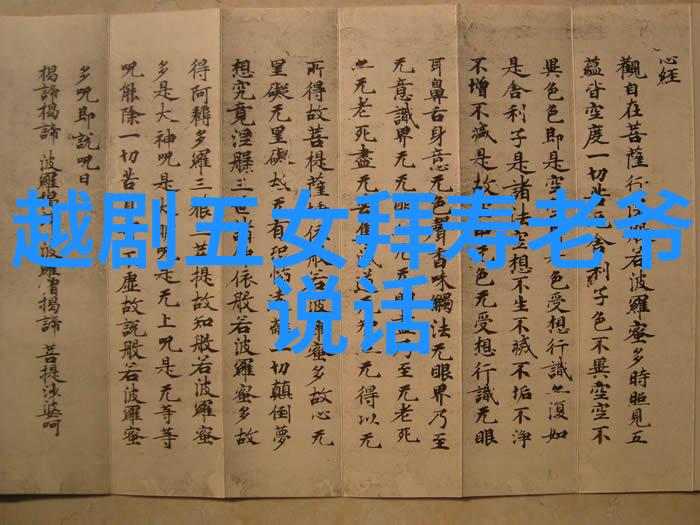 越剧五女拜寿老爷
说话
心经
觀自在菩薩行般若波羅蜜多時照見五
蘊皆空度一切苦舍利子色不異空空不
異色色即是空色受想行識亦復如
是舍利子是諸法空想不生不滅不垢不淨
不增不減是故色无受想行識无眼
耳鼻舌身意无色聲香味觸法无眼界乃至
无意識界无无盡乃至无老死
亦无老死盡无集无得以无
所得故菩提薩依般若波羅蜜多故心无
罣礙无罣礙故无有恐怖一切顛倒夢
想究竟涅槃三世依般若波羅蜜多故
得阿耨多羅三藐菩提故知般若波羅蜜
多是大神呪是大呪是无上呪是无等等
呪能除一切苦不虛故說般若波羅蜜
多呪即說呪曰
揭諦揭諦 波羅揭 波羅僧揭諦 菩提婆呵